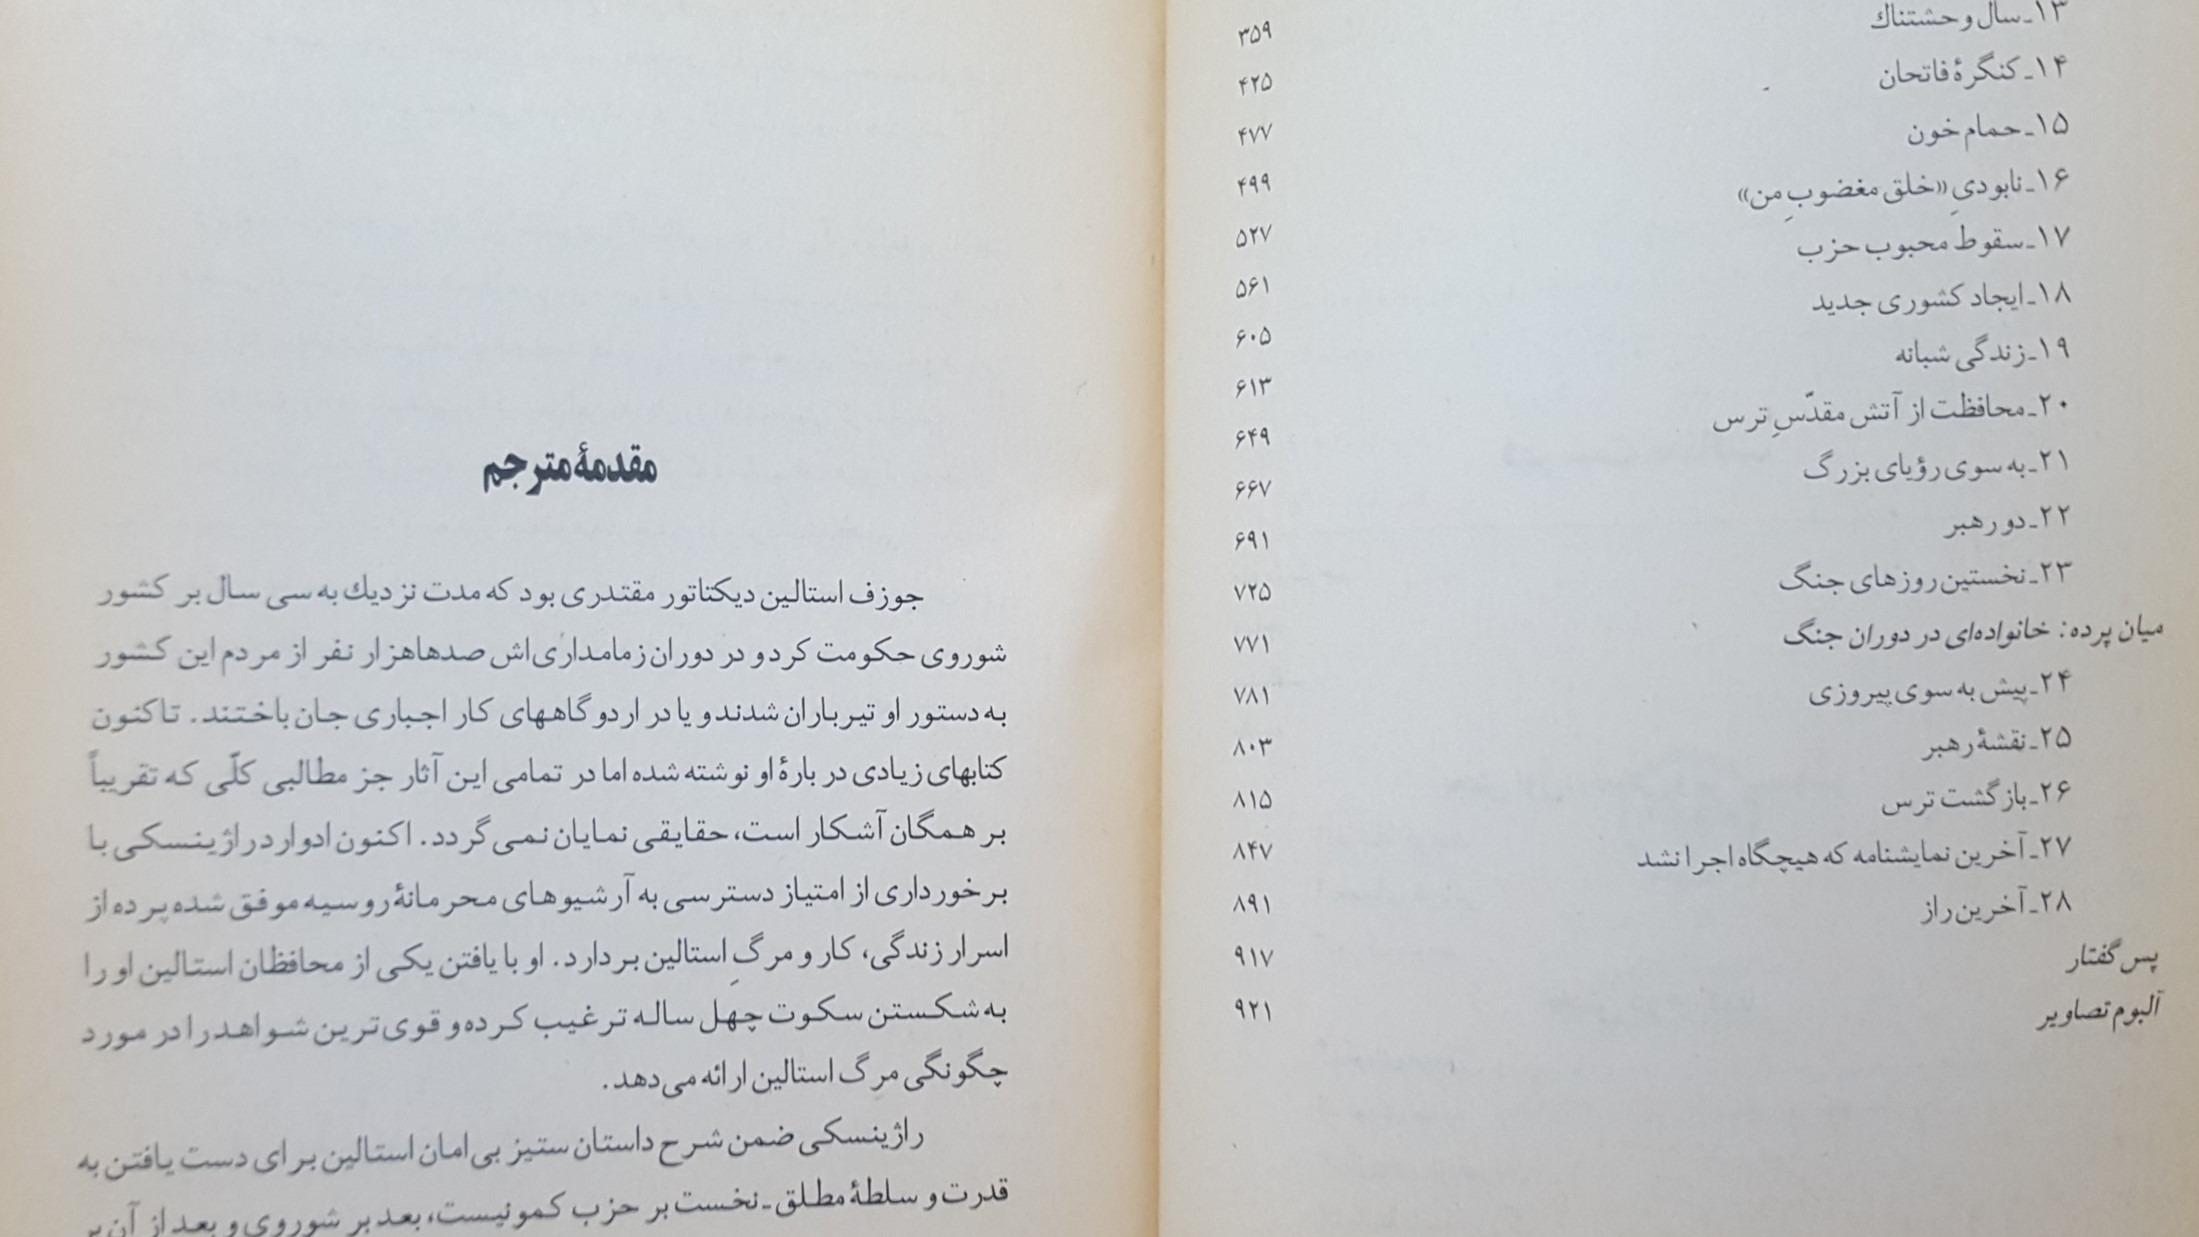 ۱۳ـ سال وحشتناك ۳۵۹
۱۴ـ کنگرهٔ فاتحان ۴۲۵
۱۵ـ حمام خون ۴۷۷
۱۶ـ نابودیِ «خلق مغضوبِ من» ۴۹۹
۱۷ـ سقوط محبوب حزب ۵۲۷
۱۸ـ ایجاد کشوری جدید ۵۶۱
۱۹ـ زندگی شبانه ۶۰۵
۲۰ـ محافظت از آتش مقدّسِ ترس ۶۱۳
۲۱ـ به سوی رؤیای بزرگ ۶۴۹
۲۲ـ دو رهبر ۶۶۷
۲۳ـ نخستین روزهای جنگ ۶۹۱
میان پرده: خانواده‌ای در دوران جنگ ۷۲۵
۲۴ـ پیش به سوی پیروزی ۷۷۱
۲۵ـ نقشهٔ رهبر ۷۸۱
۲۶ـ بازگشت ترس ۸۰۳
۲۷ـ آخرین نمایشنامه که هیچگاه اجرا نشد ۸۱۵
۲۸ـ آخرین راز ۸۴۷
پس گفتار ۸۹۱
آلبوم تصاویر ۹۱۷
۹۲۱
مقدمهٔ مترجم
جوزف استالین دیکتاتور مقتدری بود که مدت نزدیك به سی سال بر کشور
شوروی حکومت کرد و در دوران زمامداری‌اش صدها هزار نفر از مردم این کشور
به دستور او تیرباران شدند و یا در اردوگاههای کار اجباری جان باختند. تاکنون
کتابهای زیادی دربارهٔ او نوشته شده اما در تمامی این آثار جز مطالبی کلّی که تقریباً
بر همگان آشکار است، حقایقی نمایان نمی‌گردد. اکنون ادوارد راژینسکی با
برخورداری از امتیاز دسترسی به آرشیوهای محرمانهٔ روسیه موفق شده پرده از
اسرار زندگی، کار و مرگِ استالین بردارد. او با یافتن یکی از محافظان استالین او را
به شکستن سکوت چهل ساله ترغیب کرده و قوی‌ترین شواهد را در مورد
چگونگی مرگ استالین ارائه می‌دهد.
راژینسکی ضمن شرح داستان ستیز بی‌امان استالین برای دست یافتن به
قدرت و سلطهٔ مطلق ـ نخست بر حزب کمونیست، بعد بر شوروی و بعد از آن بر